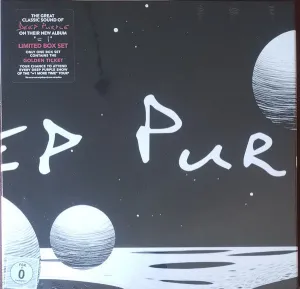 THE GREAT
CLASSIC SOUND OF
DEEP PURPLE
ON THEIR NEW ALBUM
"=1"
LIMITED BOX SET
ONLY ONE BOX SET
CONTAINS THE
GOLDEN TICKET
YOUR CHANCE TO ATTEND
EVERY DEEP PURPLE SHOW
OF THE "=1 MORE TIME" TOUR*
EP PUR
0